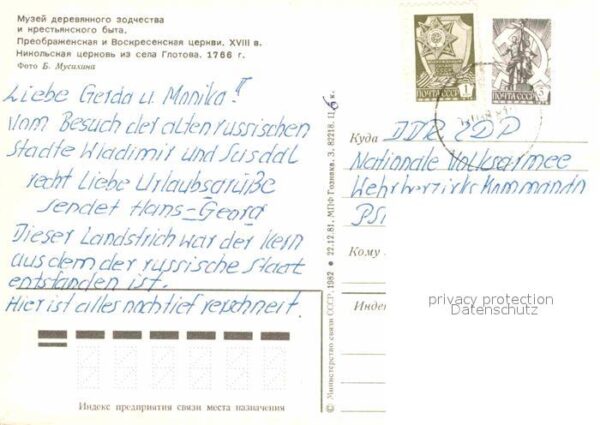 Музей деревянного зодчества
и крестьянского быта.
Преображенская и Воскресенская церкви. XVIII в.
Никольская церковь из села Глотова. 1766 г.
Фото Б. Мусихина
Liebe Gerda u. Monika!
Vom Besuch der alten russischen
Städte Wladimir und Susdal
recht liebe Urlaubsgrüße
sendet Hans-Georg
Dieser Landstrich war der Kern
aus dem der russische Staat
entstanden ist.
Hier ist alles noch tief verschneit.
Индекс предприятия связи места назначения
© Министерство связи СССР. 1982 • 22.12.81. МПФ Гознака. З. 82218. Ц 6 к.
ПОЧТА СССР 1
ПОЧТА СССР
Куда DDR ГДР
Nationale Volksarmee
Wehrbezirkskommando
Кому
Индекс
privacy protection
Datenschutz